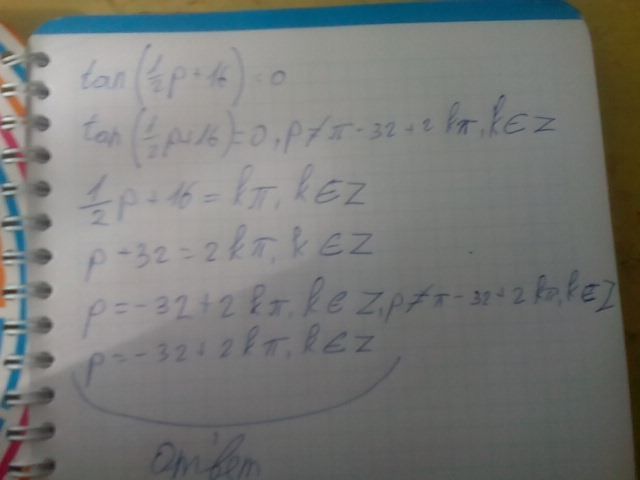 tan(1/2p+16)=0
tan(1/2p+16)=0, p≠π-32+2kπ, k∈Z
1/2p+16=kπ, k∈Z
p+32=2kπ, k∈Z
p=-32+2kπ, k∈Z, p≠π-32+2kπ, k∈Z
p=-32+2kπ, k∈Z
ответ